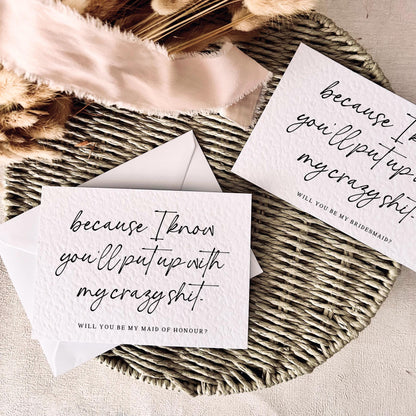 because I know
you'll put up with
my crazy shit.
WILL YOU BE MY MAID OF HONOUR?
because I
you'll put up
my crazy shit.
WILL YOU BE MY BRIDESMAID?